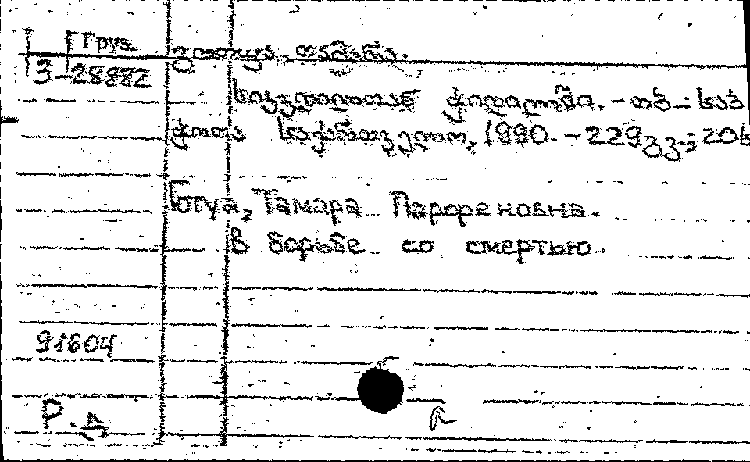 Груз.
3-28882
გოთუა, თამარა.
სიკვდილთან ჭიდილში. - თბ.: საბ
ჭოთა საქართველო, 1990. - 229გვ.; 20ს
Готуа, Тамара Парфеновна.
В борьбе со смертью.
91604
Р.